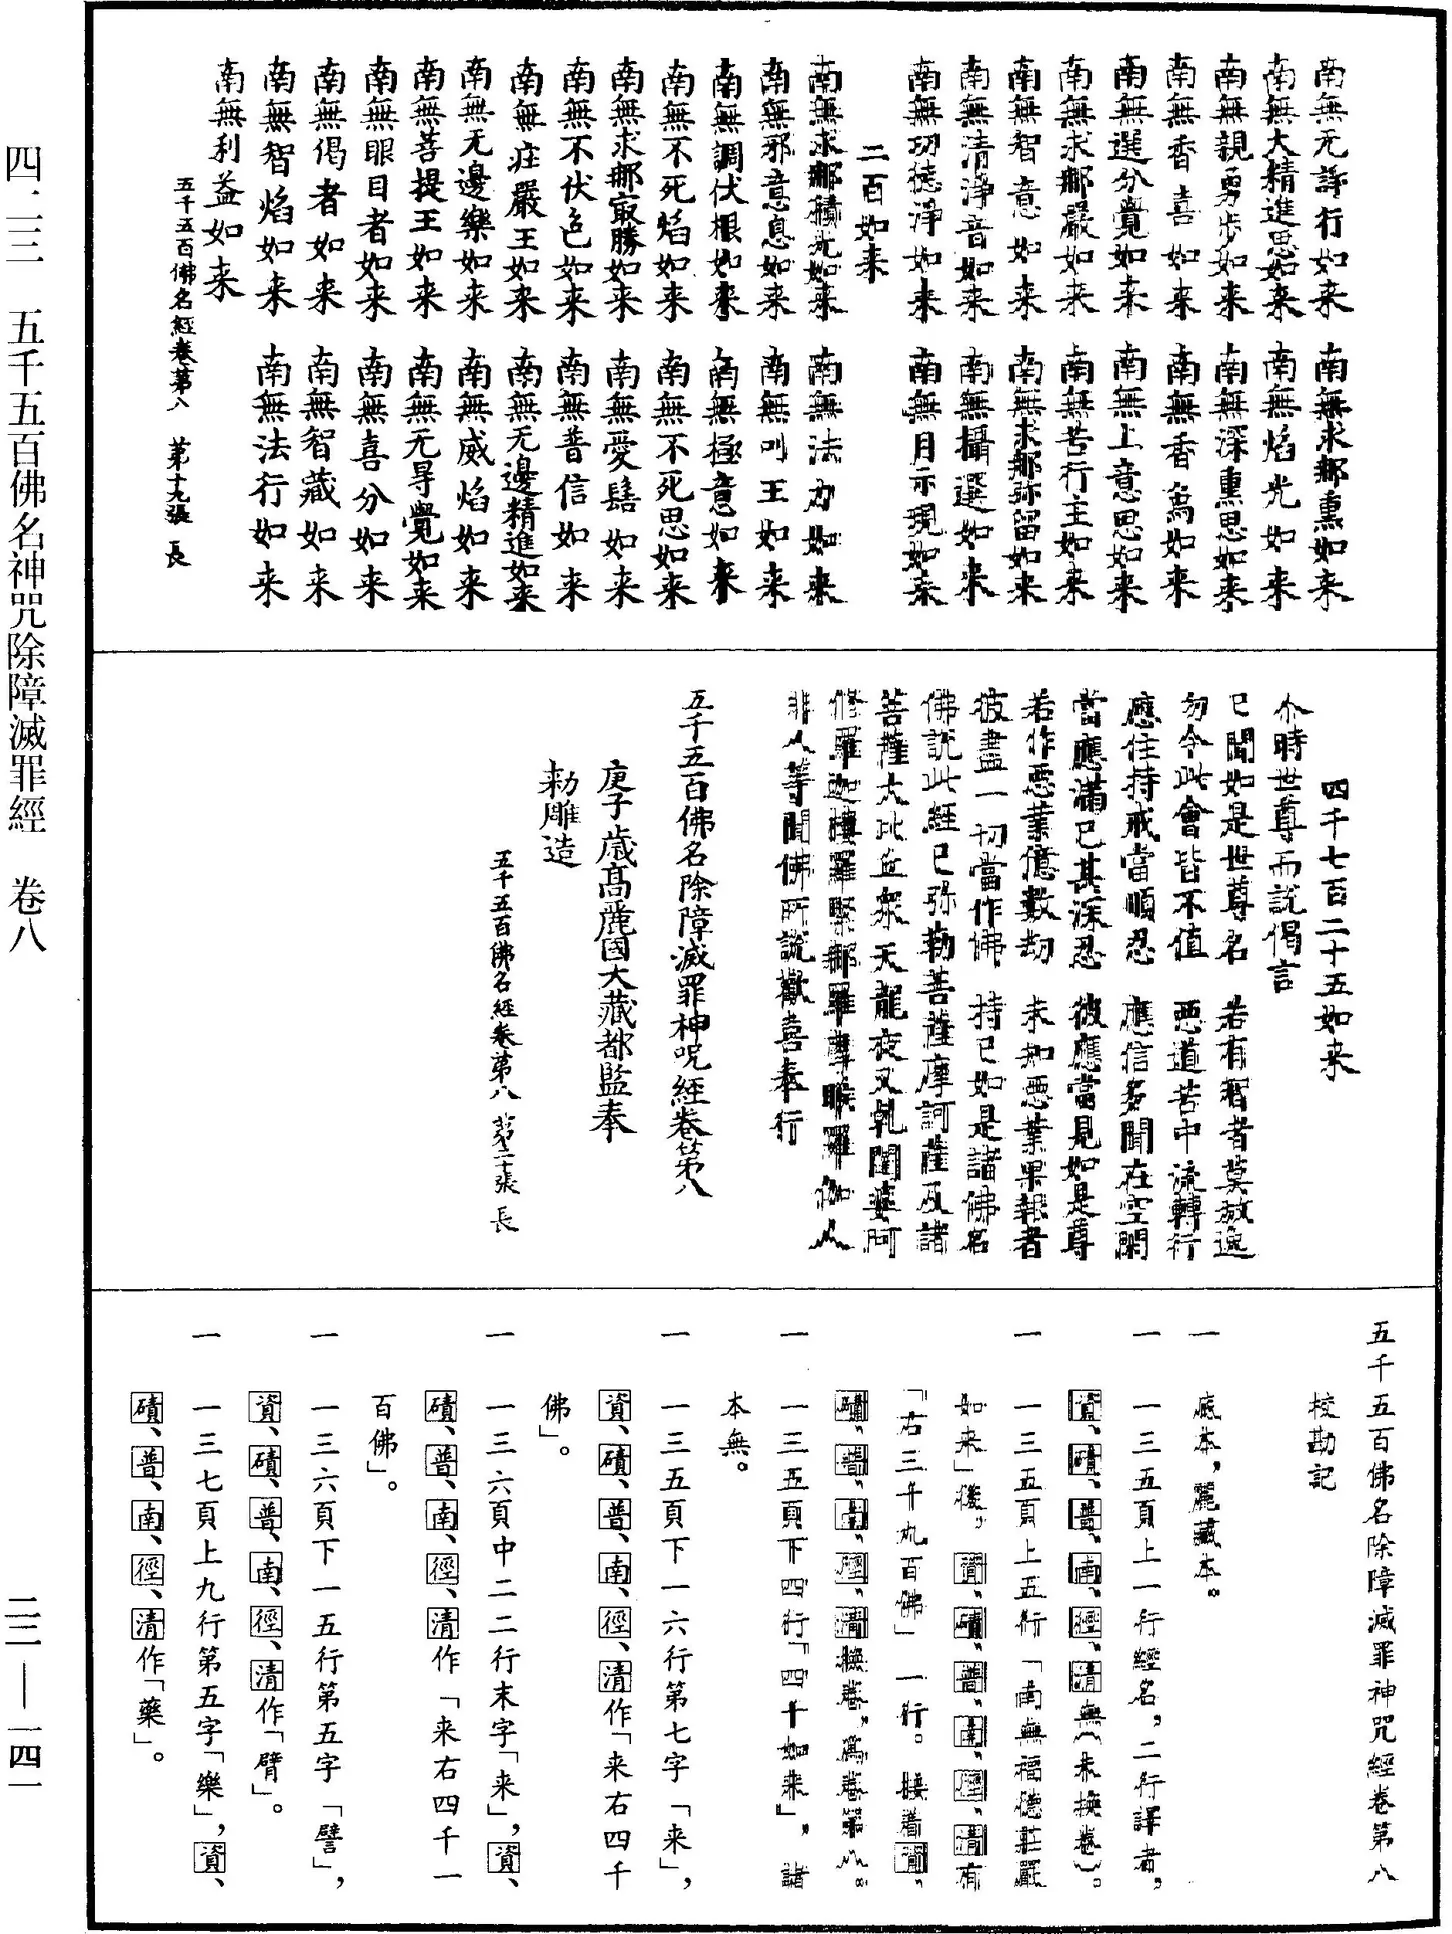 南無无諍行如来　南無求那熏如来
南無大精進思如来　南無焰光如来
南無親勇步如来　南無深熏思如来
南無香喜如来　南無香為如来
南無選分覺如来　南無上意思如来
南無求那嚴如来　南無苦行主如来
南無智意如来　南無求那弥留如来
南無清淨音如来　南無攝選如来
南無功德淨如来　南無月示現如来
二百如来
南無求那積光如来　南無法力如来
南無邪意息如来　南無叫王如来
南無調伏根如来　南無極意如来
南無不死焰如来　南無不死思如来
南無求那㝡勝如来　南無愛髻如来
南無不伏色如来　南無普信如来
南無疰嚴王如来　南無无邊精進如来
南無无邊樂如来　南無威焰如来
南無菩提王如来　南無无㝵覺如来
南無眼目者如来　南無喜分如来
南無偈者如来　南無智藏如来
南無智焰如来　南無法行如来
南無利益如来
五千五百佛名經卷第八　第十九張　長
四千七百二十五如来
尒時世尊而說偈言
已聞如是世尊名　若有智者莫放逸
勿令此會皆不值　惡道苦中流轉行
應住持戒當順忍　應信多聞在空閑
當應滿已甚深忍　彼應當見如是尊
若作惡業億數劫　未知惡業果報者
彼盡一切當作佛　持已如是諸佛名
佛說此經已弥勒菩薩摩訶薩及諸
菩薩大比丘衆天龍夜叉乹闥婆阿
修羅迦樓羅緊那羅摩睺羅伽人
非人等聞佛所說歡喜奉行
五千五百佛名除障滅罪神呪經卷第八
庚子歲髙麗國大藏都監奉
勅雕造
五千五百佛名經卷第八　第二十張　長
五千五百佛名除障滅罪神咒經卷第八
校勘記
一　底本，麗藏本。
一　一三五頁上一行經名，二行譯者，
資、磧、普、南、徑、清無（未換卷）。
一　一三五頁上五行「南無福德莊嚴
如来」後，資、磧、普、南、徑、清有
「右三千九百佛」一行。接着資、
磧、普、南、徑、清換卷，爲卷第八。
一　一三五頁下四行「四千如来」，諸
本無。
一　一三五頁下一六行第七字「来」，
資、磧、普、南、徑、清作「来右四千
佛」。
一　一三六頁中二二行末字「来」，資、
磧、普、南、徑、清作「来右四千一
百佛」。
一　一三六頁下一五行第五字「譬」，
資、磧、普、南、徑、清作「臂」。
一　一三七頁上九行第五字「樂」，資、
磧、普、南、徑、清作「藥」。
四二三　五千五百佛名神咒除障滅罪經　卷八
二二——一四一